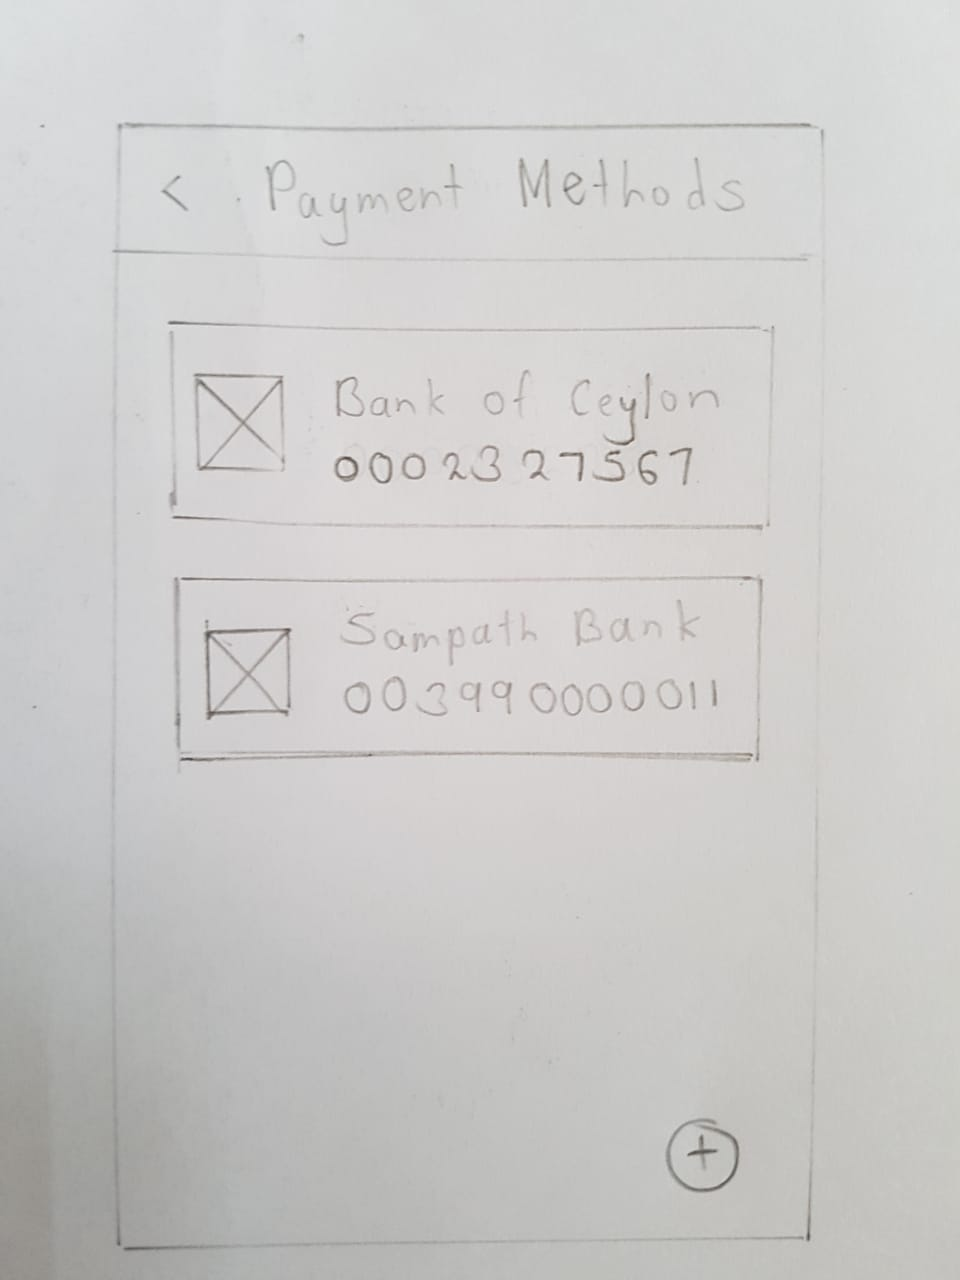 < Payment Methods
Bank of Ceylon
0002327567
Sampath Bank
003990000011
+